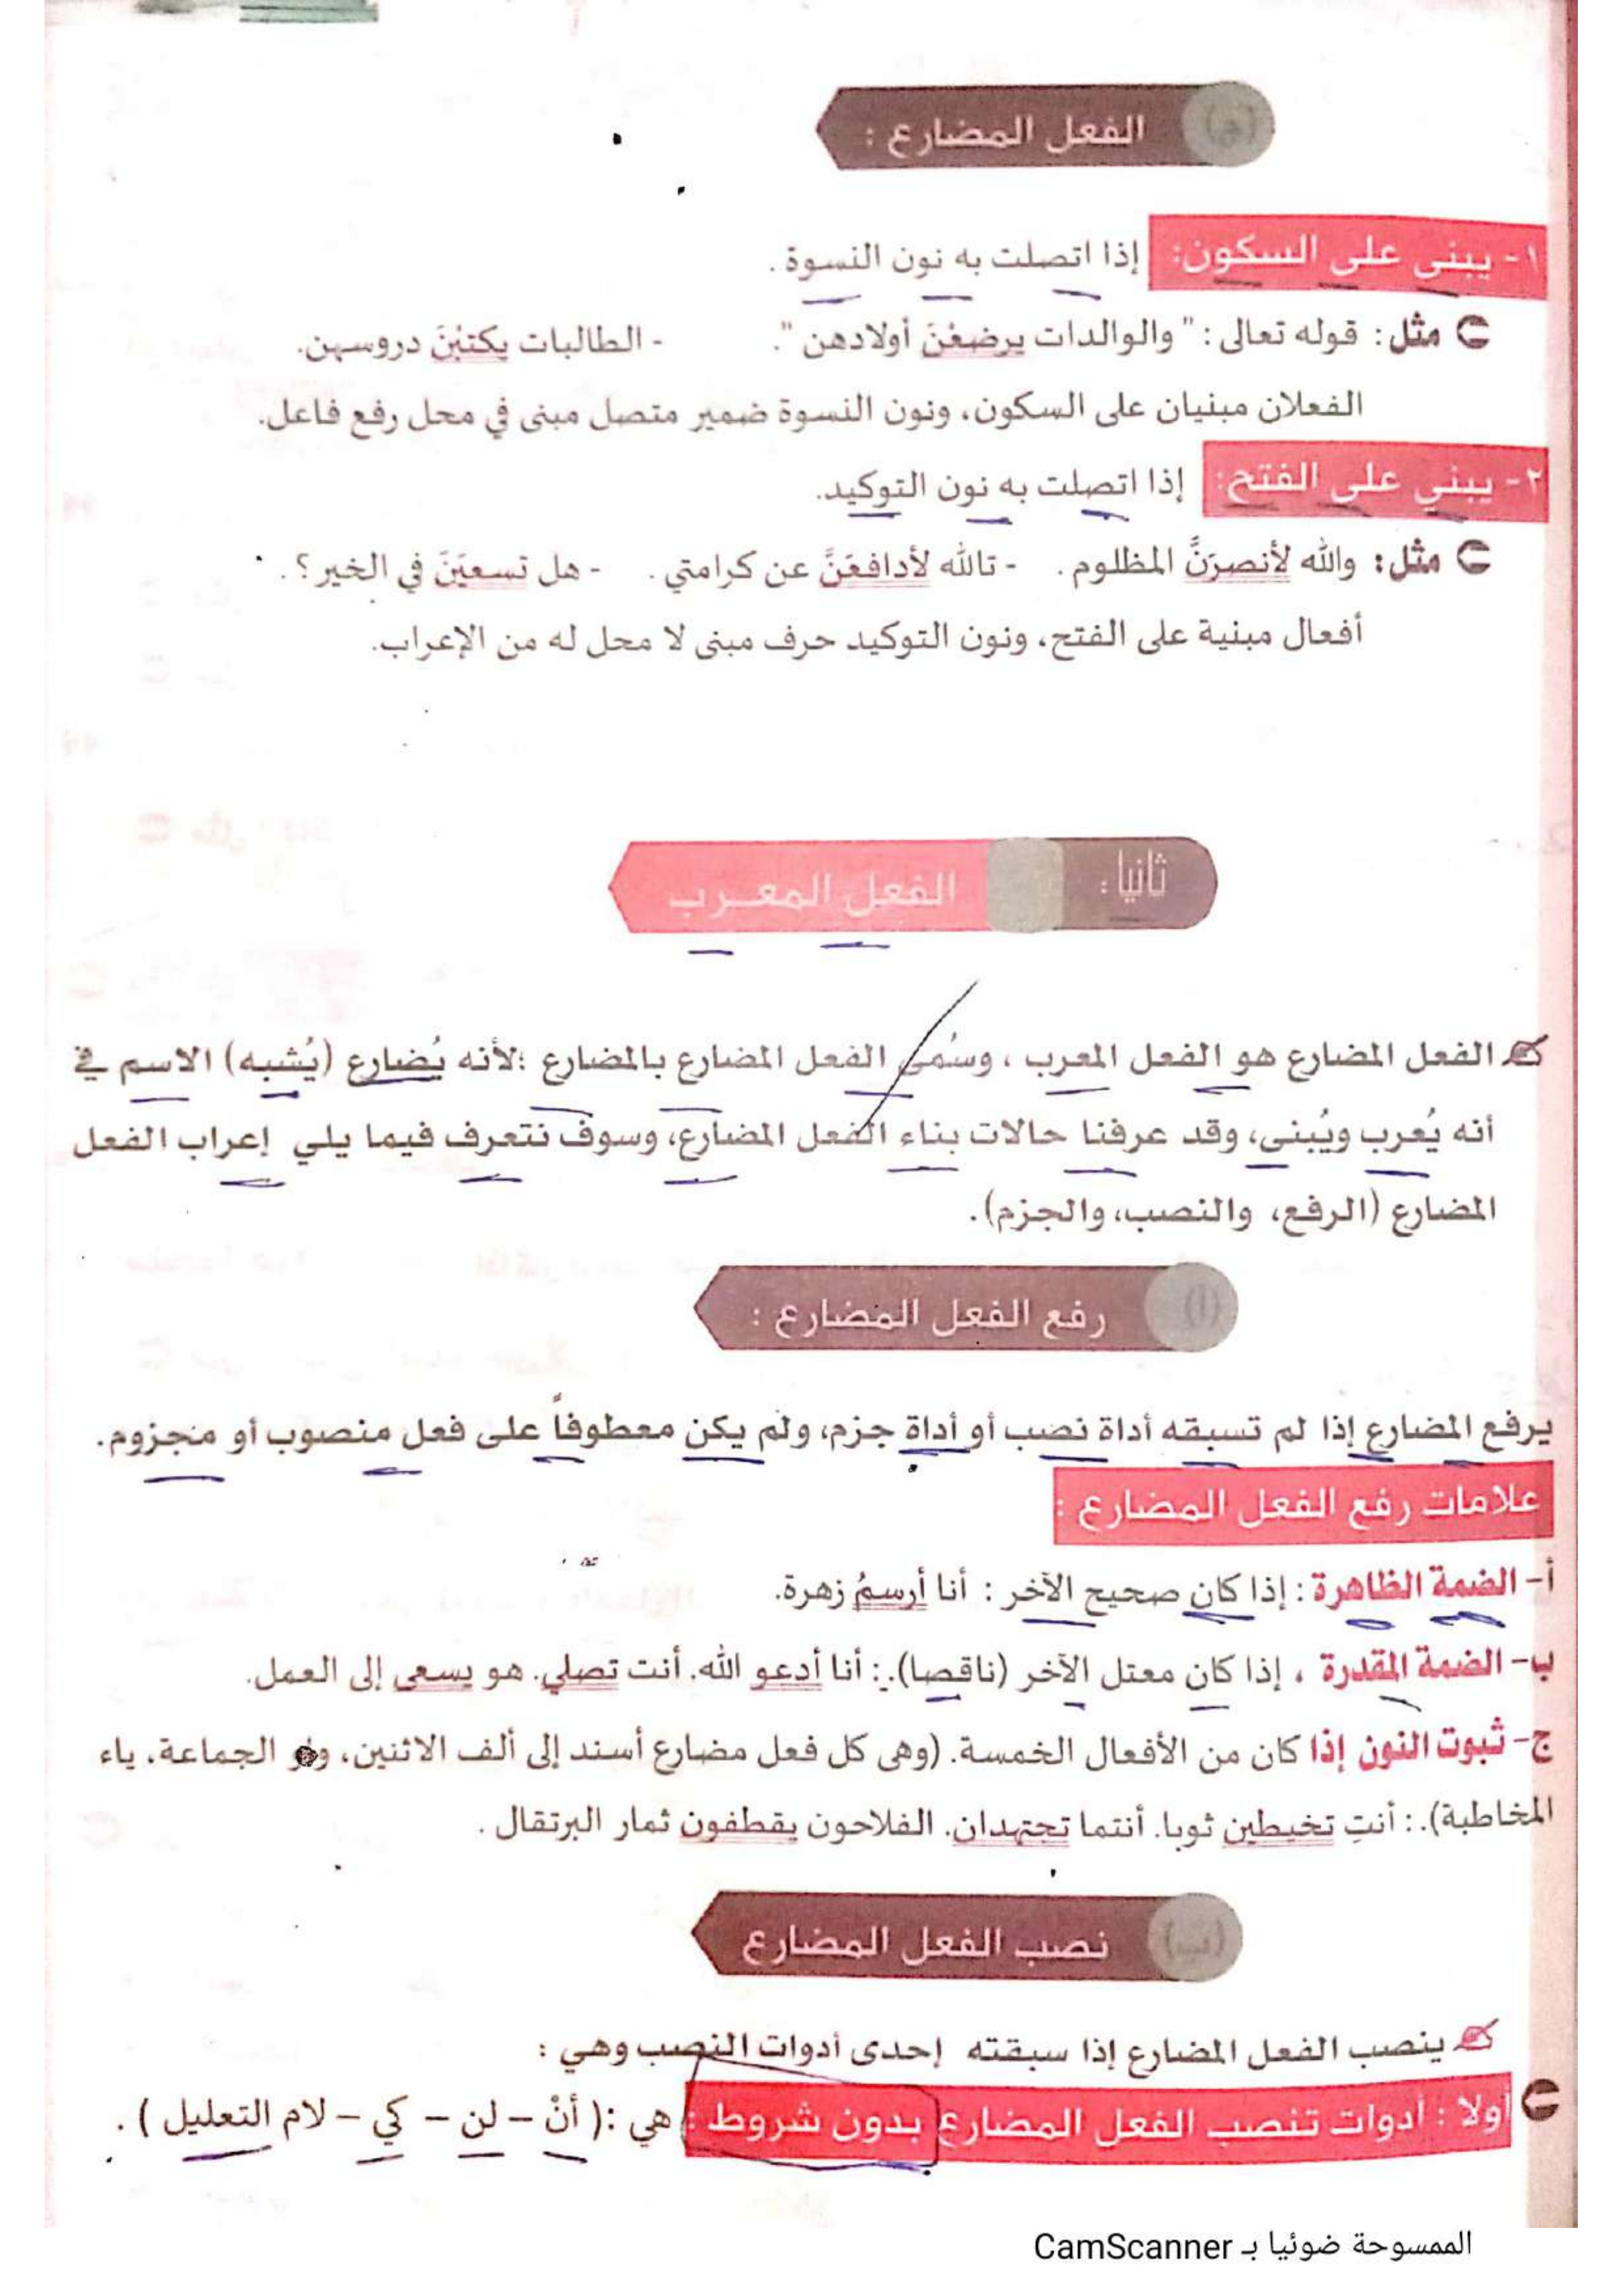 (ج) الفعل المضارع :
١- يبنى على السكون: إذا اتصلت به نون النسوة .
مثل: قوله تعالى : " والوالدات يرضعْنَ أولادهن ". - الطالبات يكتبْنَ دروسهن.
الفعلان مبنيان على السكون، ونون النسوة ضمير متصل مبنى في محل رفع فاعل.
٢- يبني على الفتح: إذا اتصلت به نون التوكيد.
مثل: والله لأنصرَنَّ المظلوم . - تالله لأدافعَنَّ عن كرامتي . - هل تسعيَنَ في الخير؟ .
أفعال مبنية على الفتح، ونون التوكيد حرف مبنى لا محل له من الإعراب.
ثانيا: الفعل المعرب
الفعل المضارع هو الفعل المعرب ، وسُمى الفعل المضارع بالمضارع ؛لأنه يُضارع (يُشبه) الاسم في
أنه يُعرب ويُبنى، وقد عرفنا حالات بناء الفعل المضارع، وسوف نتعرف فيما يلي إعراب الفعل
المضارع (الرفع، والنصب، والجزم).
(أ) رفع الفعل المضارع :
يرفع المضارع إذا لم تسبقه أداة نصب أو أداة جزم، ولم يكن معطوفاً على فعل منصوب أو مجزوم.
علامات رفع الفعل المضارع :
أ- الضمة الظاهرة : إذا كان صحيح الآخر : أنا أرسمُ زهرة.
ب- الضمة المقدرة ، إذا كان معتل الآخر (ناقصا).: أنا أدعو الله. أنت تصلي. هو يسعى إلى العمل.
ج- ثبوت النون إذا كان من الأفعال الخمسة. (وهى كل فعل مضارع أسند إلى ألف الاثنين، واو الجماعة، ياء
المخاطبة).: أنتِ تخيطين ثوبا. أنتما تجتهدان. الفلاحون يقطفون ثمار البرتقال .
(ب) نصب الفعل المضارع
ينصب الفعل المضارع إذا سبقته إحدى أدوات النصب وهي :
أولا : أدوات تنصب الفعل المضارع بدون شروط : هي :( أنْ – لن – كي – لام التعليل ) .
الممسوحة ضوئيا بـ CamScanner